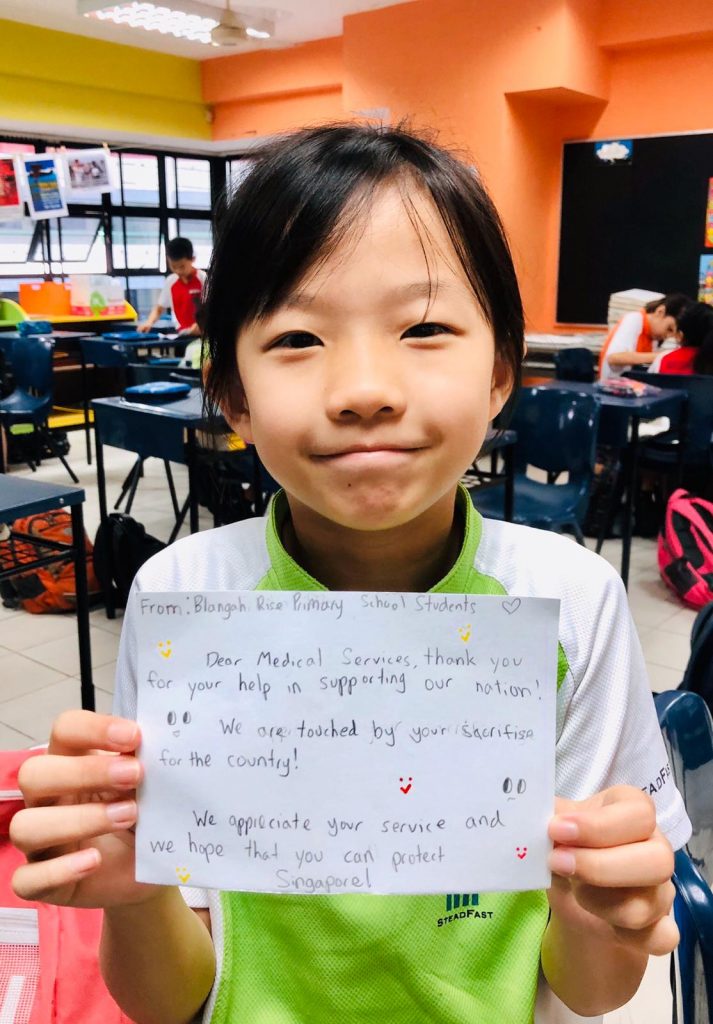 From: Blangah Rise Primary School Students
Dear Medical Services, thank you
for your help in supporting our nation!
We are touched by your sacrifise
for the country!
We appriciate your service and
we hope that you can protect
Singapore!
STEADFAST
STEADFAST